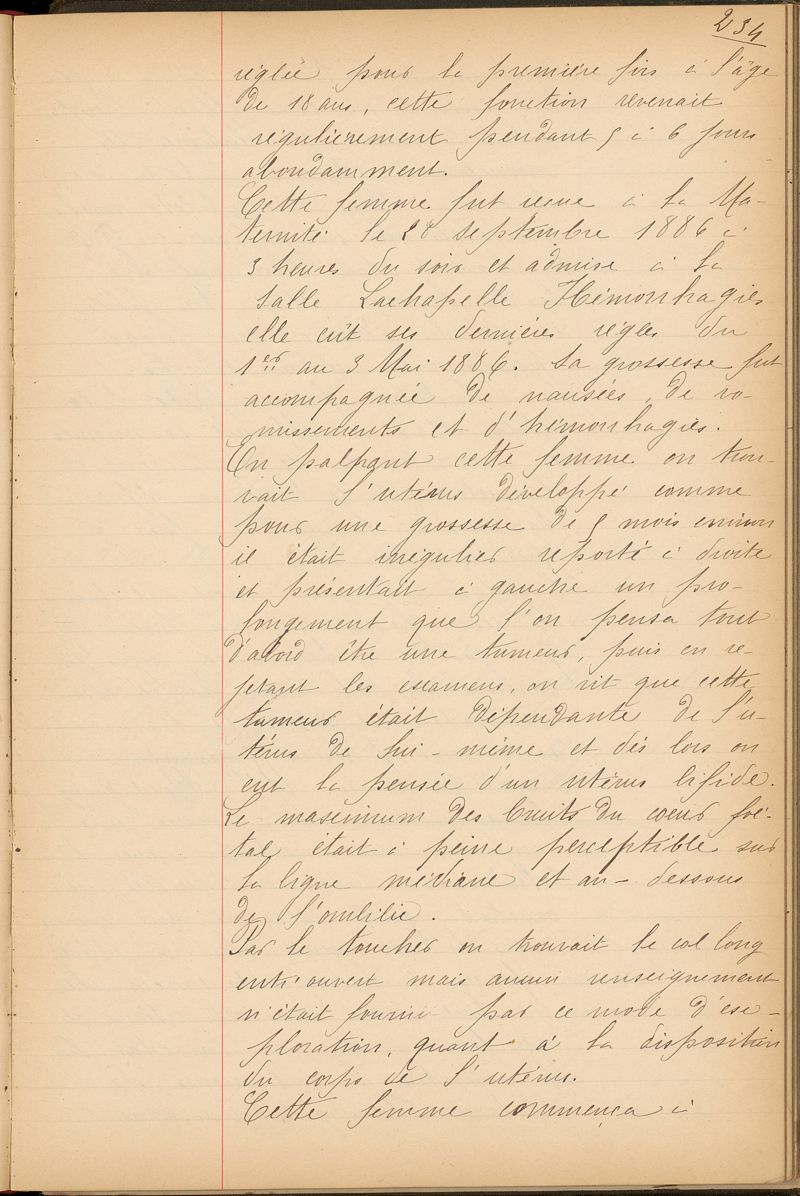 234
réglée pour la première fois à l'âge
de 18 ans, cette fonction revenait
régulièrement pendant 5 à 6 jours
abondamment.
Cette femme fut reçue à la Ma-
ternité le 28 septembre 1886 à
3 heures du soir et admise à la
salle Lachapelle Hémorrhagies
elle eût ses dernières règles du
1er au 3 Mai 1886. Sa grossesse fut
accompagnée de nausées, de vo-
missements et d'hémorrhagies.
En palpant cette femme on trou-
vait l'utérus développé comme
pour une grossesse de 5 mois environ
il était irrégulier reporté à droite
et présentait à gauche un pro-
longement que l'on pensa tout
d'abord être une tumeur, puis en re-
fetant les examens, on vit que cette
tumeur était dépendante de l'u-
térus de lui-même et dès lors on
eut la pensée d'un utérus bifide.
Le maximum des bruits du cœur foe-
tal était à peine perceptible sur
la ligne médiane et au-dessous
de l'ombilic.
Par le toucher on trouvait le col long
entr'ouvert mais aucun renseignement
n'était fourni par ce mode d'ex-
ploration, quant à la disposition
du corps de l'utérus.
Cette femme commença à